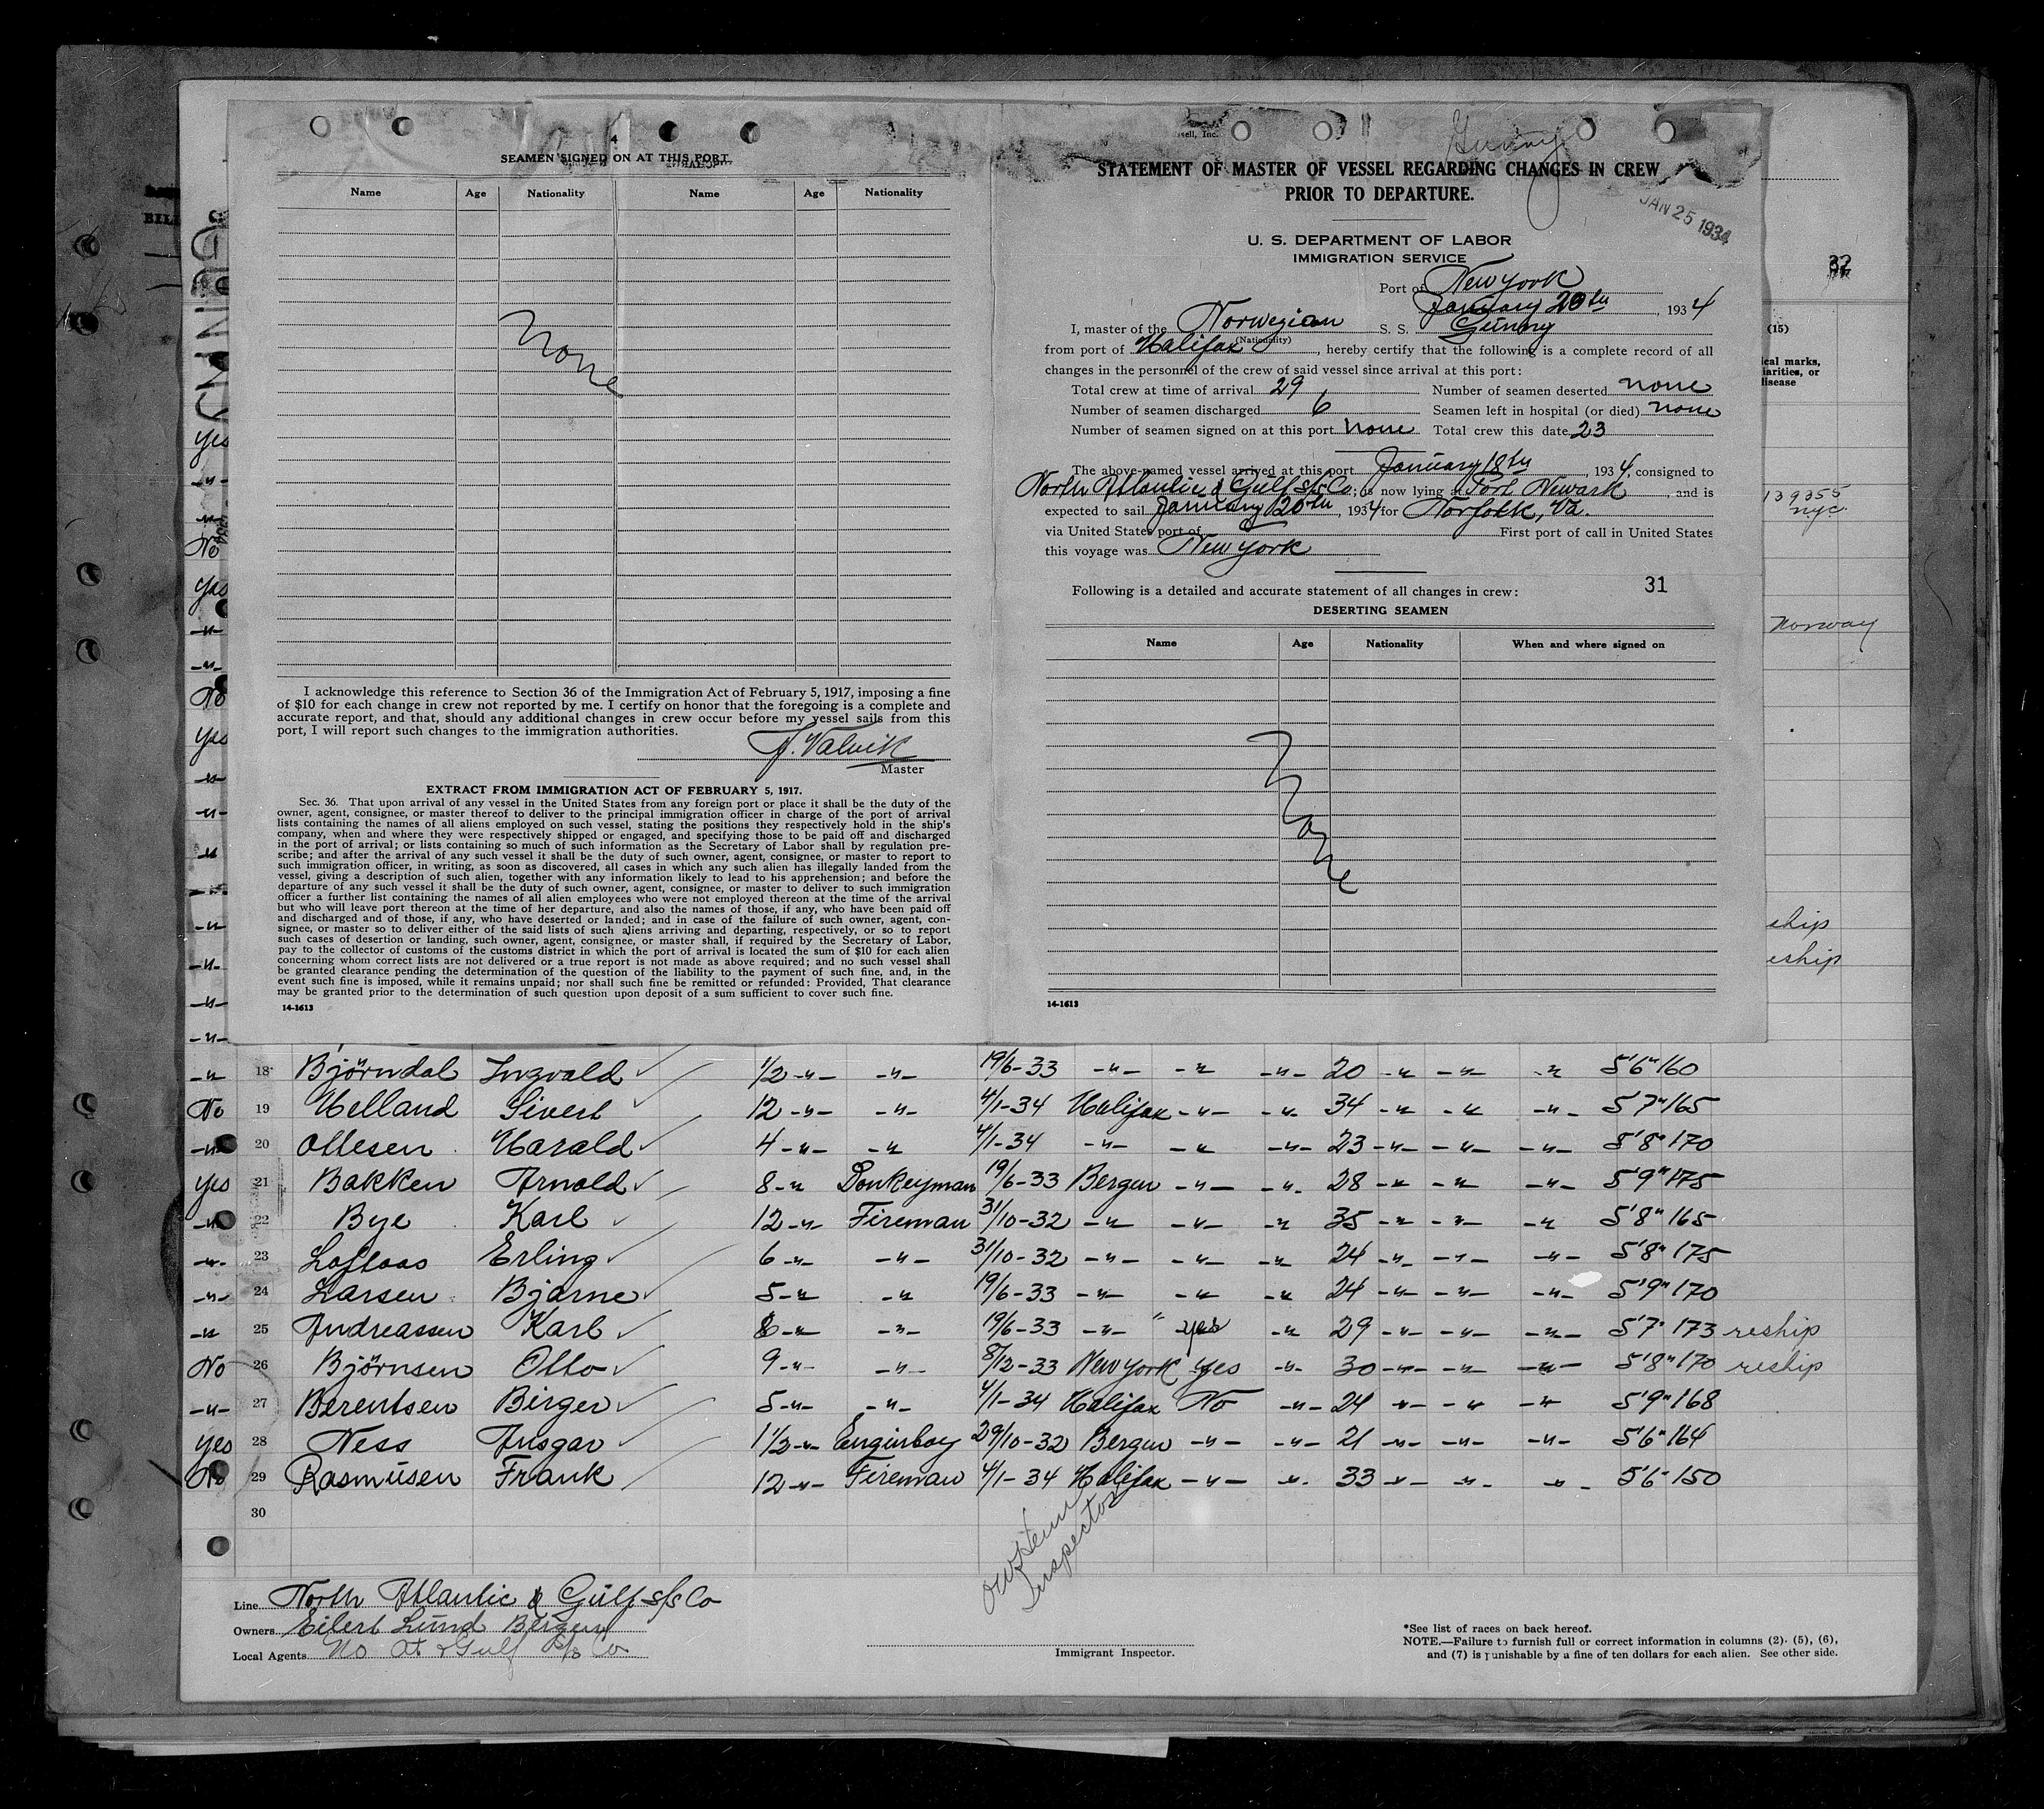 4
SEAMEN SIGNED ON AT THIS PORT
Name Age Nationality Name Age Nationality
None
I acknowledge this reference to Section 36 of the Immigration Act of February 5, 1917, imposing a fine
of $10 for each change in crew not reported by me. I certify on honor that the foregoing is a complete and
accurate report, and that, should any additional changes in crew occur before my vessel sails from this
port, I will report such changes to the immigration authorities.
Valvik
Master
EXTRACT FROM IMMIGRATION ACT OF FEBRUARY 5, 1917.
Sec. 36. That upon arrival of any vessel in the United States from any foreign port or place it shall be the duty of the
owner, agent, consignee, or master thereof to deliver to the principal immigration officer in charge of the port of arrival
lists containing the names of all aliens employed on such vessel, stating the positions they respectively hold in the ship's
company, when and where they were respectively shipped or engaged, and specifying those to be paid off and discharged
in the port of arrival; or lists containing so much of such information as the Secretary of Labor shall by regulation pre-
scribe; and after the arrival of any such vessel it shall be the duty of such owner, agent, consignee, or master to report to
such immigration officer, in writing, as soon as discovered, all cases in which any such alien has illegally landed from the
vessel, giving a description of such alien, together with any information likely to lead to his apprehension; and before the
departure of any such vessel it shall be the duty of such owner, agent, consignee, or master to deliver to such immigration
officer a further list containing the names of all alien employees who were not employed thereon at the time of the arrival
but who will leave port thereon at the time of her departure, and also the names of those, if any, who have been paid off
and discharged and of those, if any, who have deserted or landed; and in case of the failure of such owner, agent, con-
signee, or master so to deliver either of the said lists of such aliens arriving and departing, respectively, or so to report
such cases of desertion or landing, such owner, agent, consignee, or master shall, if required by the Secretary of Labor,
pay to the collector of customs of the customs district in which the port of arrival is located the sum of $10 for each alien
concerning whom correct lists are not delivered or a true report is not made as above required; and no such vessel shall
be granted clearance pending the determination of the question of the liability to the payment of such fine, and, in the
event such fine is imposed, while it remains unpaid; nor shall such fine be remitted or refunded: Provided, That clearance
may be granted prior to the determination of such question upon deposit of a sum sufficient to cover such fine.
14-1613
Gunny
STATEMENT OF MASTER OF VESSEL REGARDING CHANGES IN CREW
PRIOR TO DEPARTURE.
JAN 25 1934
U. S. DEPARTMENT OF LABOR
IMMIGRATION SERVICE
Port of New York
January 20th, 1934
I, master of the Norwegian S. S. Gunny
(Nationality)
from port of Halifax, hereby certify that the following is a complete record of all
changes in the personnel of the crew of said vessel since arrival at this port:
Total crew at time of arrival 29 Number of seamen deserted none
Number of seamen discharged 6 Seamen left in hospital (or died) none
Number of seamen signed on at this port none Total crew this date 23
The above-named vessel arrived at this port January 18th, 1934, consigned to
North Atlantic & Gulf S/S Co; is now lying at Port Newark, and is
expected to sail January 20th, 1934 for Norfolk, Va.
via United States port of First port of call in United States
this voyage was New York
Following is a detailed and accurate statement of all changes in crew: 31
DESERTING SEAMEN
Name Age Nationality When and where signed on
None
14-1613
32
(15)
ical marks,
iarities, or
disease
139355
nyc
Norway
eship
eship
BILL
Yes
-"-
-"-
No
Yes
-"-
-"-
No
Yes
-"-
-"-
-"-
-"-
-"-
-"-
-"-
-"-
-"- 18 Björndal Ingvald 1/2 -"- -"- 19/6-33 -"- -"- -"- 20 -"- -"- -"- 5'6" 160
No 19 Helland Sivert 12 -"- -"- 4/1-34 Halifax -"- -"- 34 -"- -"- -"- 5'7" 165
-"- 20 Ottesen Harald 4 -"- -"- 4/1-34 -"- -"- -"- 23 -"- -"- -"- 5'8" 170
Yes 21 Bakken Arnold 8 -"- Donkeyman 19/6-33 Bergen -"- -"- 28 -"- -"- -"- 5'9" 175
-"- 22 Bye Karl 12 -"- Fireman 31/10-32 -"- -"- -"- 35 -"- -"- -"- 5'8" 165
-"- 23 Loftaas Erling 6 -"- -"- 31/10-32 -"- -"- -"- 24 -"- -"- -"- 5'8" 175
-"- 24 Larsen Bjarne 5 -"- -"- 19/6-33 -"- -"- -"- 24 -"- -"- -"- 5'9" 170
-"- 25 Andreassen Karl 8 -"- -"- 19/6-33 -"- yes -"- 29 -"- -"- -"- 5'7" 173 reship
No 26 Björnsen Otto 9 -"- -"- 8/12-33 New York yes -"- 30 -"- -"- -"- 5'8" 170 reship
-"- 27 Berentsen Birger 5 -"- -"- 4/1-34 Halifax No -"- 24 -"- -"- -"- 5'9" 168
Yes 28 Ness Ansgar 1 1/2 -"- Enginboy 29/10-32 Bergen -"- -"- 21 -"- -"- -"- 5'6" 164
No 29 Rasmüsen Frank 12 -"- Fireman 4/1-34 Halifax -"- -"- 33 -"- -"- -"- 5'6" 150
30
Inspector
Line North Atlantic & Gulf S/S Co
Owners Eilert Lund Bergen
Local Agents No At & Gulf S/S Co.
Immigrant Inspector.
*See list of races on back hereof.
NOTE.—Failure to furnish full or correct information in columns (2), (5), (6),
and (7) is punishable by a fine of ten dollars for each alien. See other side.